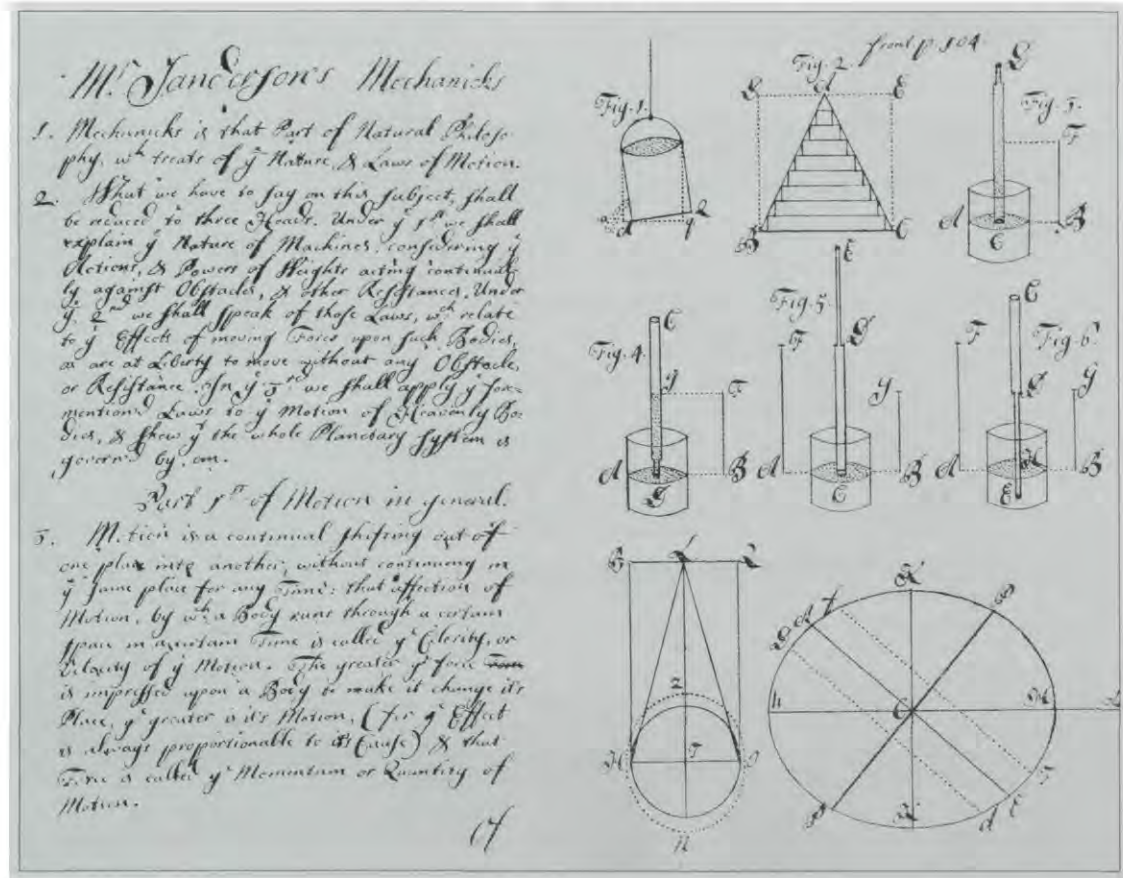 Mr. Sanderson's Mechanicks
1. Mechanicks is that Part of Natural Philoso-
phy, wch treats of ye Nature, & Laws of Motion.
2. What we have to say on this subject, shall
be reduced to three Heads. Under ye 1st we shall
explain ye Nature of Machines, considering ye
Actions, & Powers of Weights acting continual-
ly against Obstacles, & other Resistances. Under
ye 2nd we shall speak of those Laws, wch relate
to ye Effects of moving Forces upon such Bodies,
as are at Liberty to move without any Obstacle,
or Resistance. In ye 3rd we shall apply ye fore-
mention'd Laws to ye Motion of Heavenly Bo-
dies, & shew yt the whole Planetary System is
govern'd by 'em.
Part 1st of Motion in general.
3. Motion is a continual shifting out of
one place into another, without continuing in
ye same place for any Time: that affection of
Motion, by wch a Body runs through a certain
space in a certain Time is called ye Celerity, or
Velocity of ye Motion. The greater ye force
is impressed upon a Body to make it change it's
Place, ye greater is it's Motion, (for ye Effect
is always proportionable to its Cause) & that
Force is called ye Momentum or Quantity of
Motion.
Of
front. p. 104.
Fig. 1.
Fig. 2.
Fig. 3.
Fig. 4.
Fig. 5.
Fig. 6.